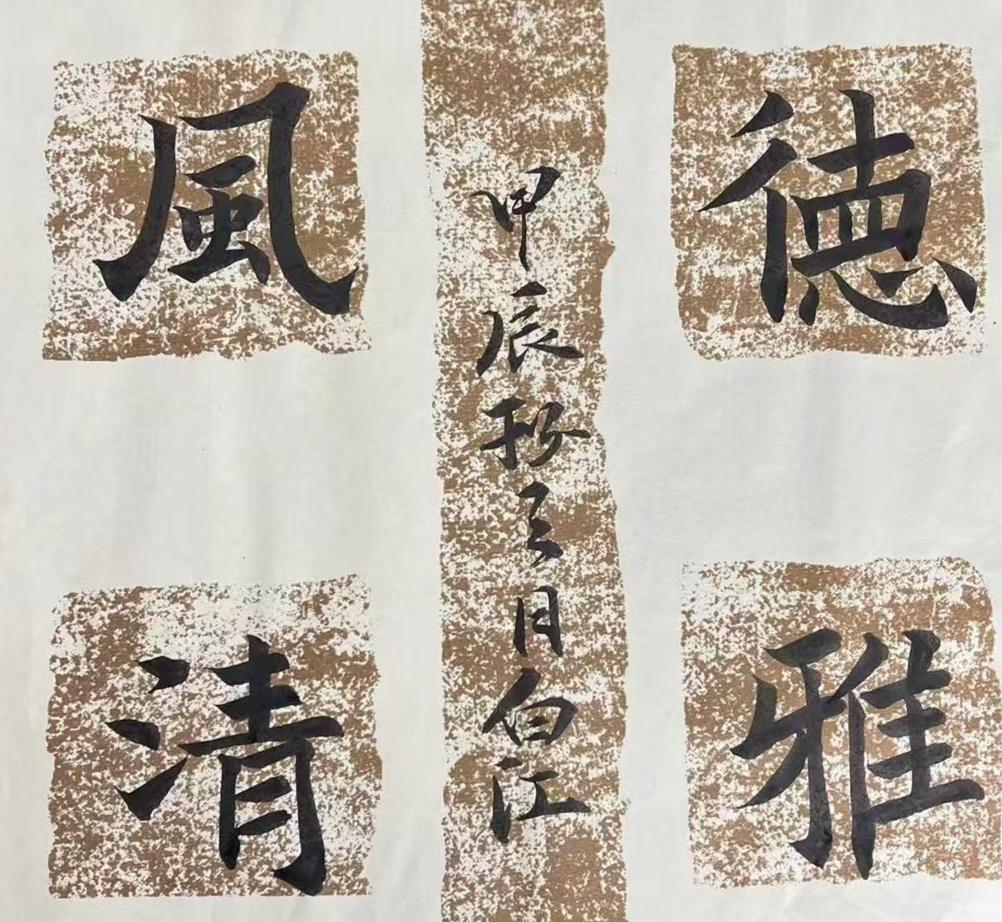 德雅
風清
甲辰三月白江